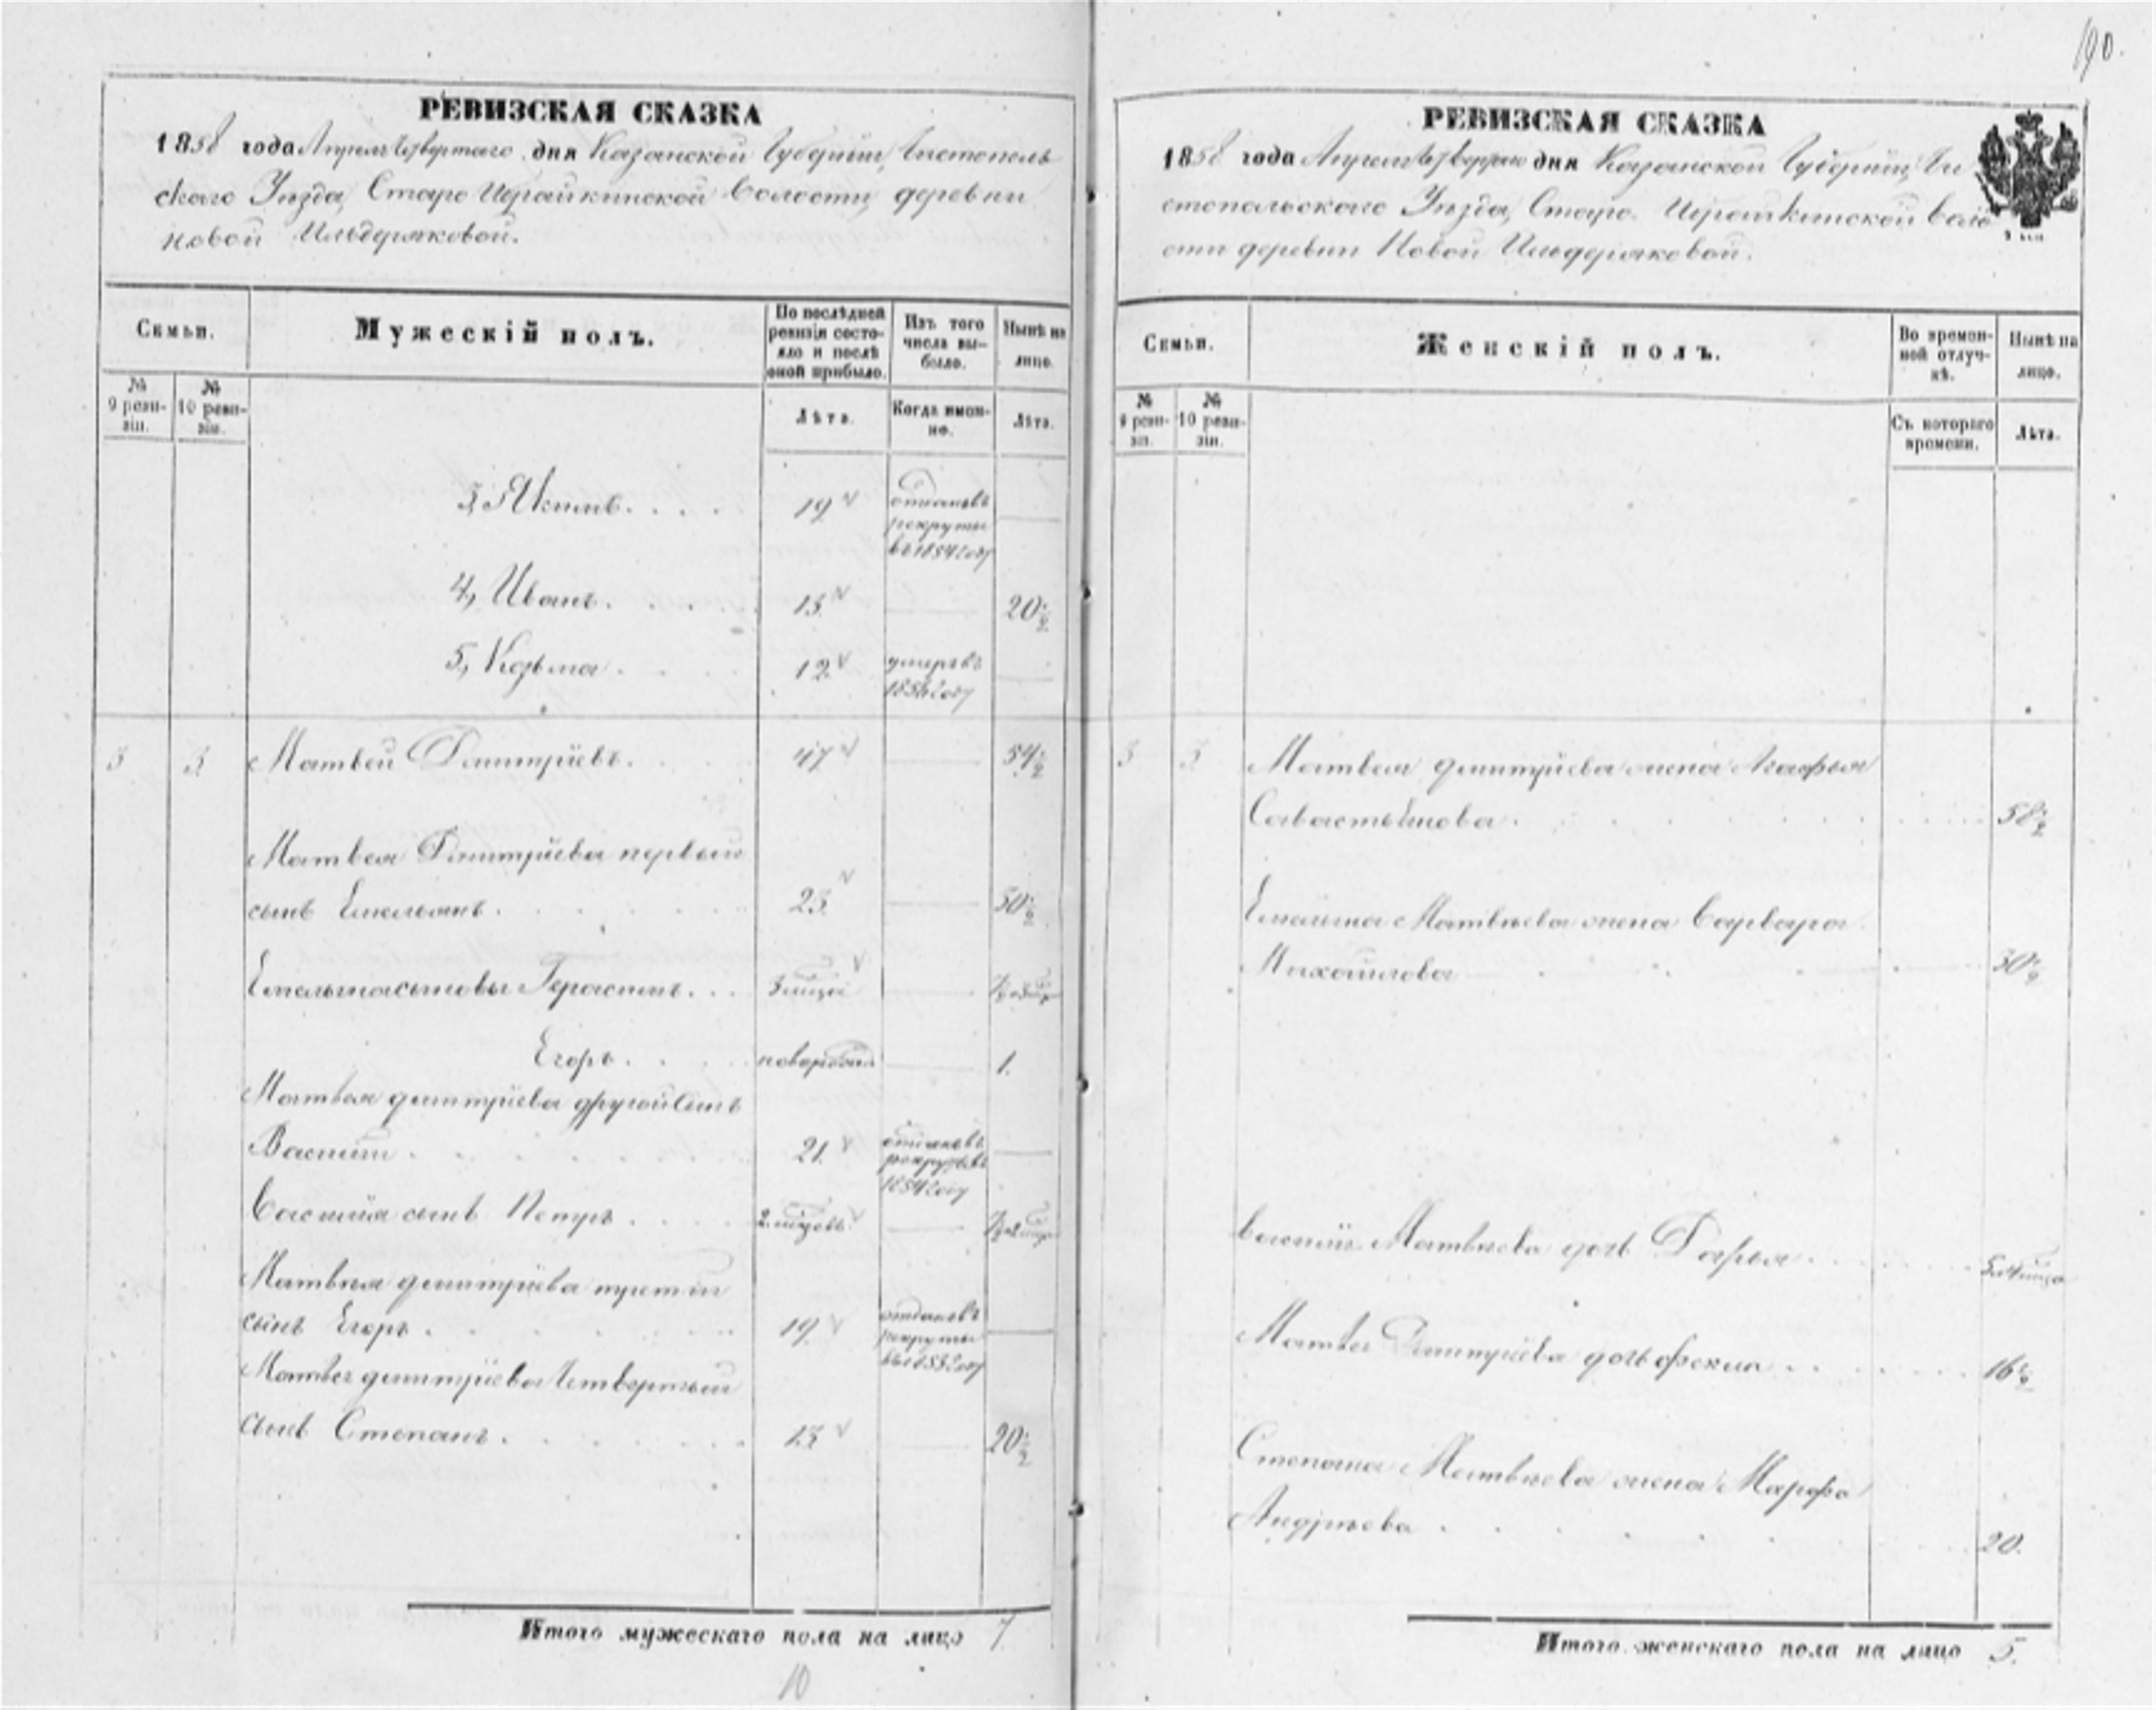 190.
РЕВИЗСКАЯ СКАЗКА
1858 года Апреля Четвертаго дня Казанской Губернiи, Чистополь
скаго Уѣзда, Старо Играйкинской Волости, деревни
новой Ильдеряковой.
Семьи.
Мужескiй полъ.
По послѣдней
ревизiи состо-
яло и послѣ
оной прибыло.
Изъ того
числа вы-
было.
Нынѣ на
лицо.
№
9 реви-
зiи.
№
10 реви-
зiи.
Лѣта.
Когда имен-
но.
Лѣта.
3, Якимъ. 19
отданъ въ
рекруты
въ 1854 году
4, Иванъ. 13 20½
5, Козьма 12
умеръ въ
году
3 3 Матвей Дмитрiевъ. 47 54½
Матвея Дмитрiева первый
сынъ Емельянъ. 23 30½
Емельяна сыновья Герасимъ. 3 мѣсяца
Егоръ. новорожден 1.
Матвея дмитрiева другой сынъ
Василiй 21
отданъ въ
рекруты въ
1854 году
Василiя сынъ Петръ. 2 мѣсяцевъ
Матвея дмитрiева третiй
сынъ Егоръ. 19
отданъ въ
рекруты
году
Матвея дмитрiева Четвертый
сынъ Степанъ. 13 20½
Итого мужескаго пола на лицо 7
10
РЕВИЗСКАЯ СКАЗКА
1858 года Апреля Четвертаго дня Казанской Губернiи, Чи
стопольскаго Уѣзда, Старо Играйкинской Воло
сти деревни Новой Ильдеряковой.
Семьи.
Женскiй полъ.
Во времен-
ной отлуч-
кѣ.
Нынѣ на
лицо.
№
9 реви-
зiи.
№
10 реви-
зiи.
Съ котораго
времени.
Лѣта.
3 3 Матвея дмитрiева жена Агафья
Савастьянова. 58½
Емельяна Матвѣева жена Варвара
Михайлова 30½
Василiя Матвѣева дочь Дарья
Матвея Дмитрiева дочь Фекла 16½
Степана Матвѣева жена Марфа
Андрѣева 20.
Итого женскаго пола на лицо 5.